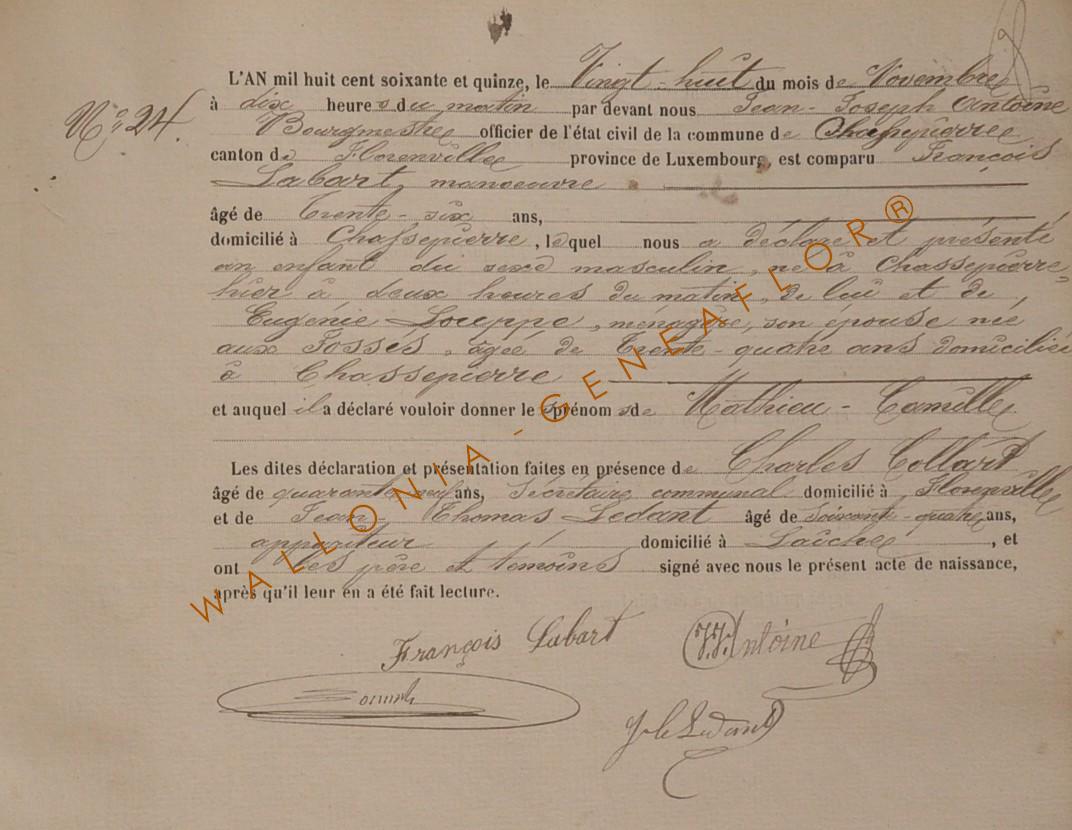 N° 24.
L'AN mil huit cent soixante et quinze, le Vingt-huit du mois de Novembre
à dix heures du matin par devant nous Jean-Joseph Antoine
Bourgmestre officier de l'état civil de la commune de Chassepierre
canton de Florenville province de Luxembourg, est comparu François
Labart, manoeuvre
âgé de Trente-six ans,
domicilié à Chassepierre, lequel nous a déclaré et présenté
un enfant du sexe masculin, né à Chassepierre
hier à deux heures du matin, de lui et de
Eugénie Louppe, ménagère, son épouse née
aux Fossés, âgée de Trente-quatre ans domiciliée
à Chassepierre
et auquel il a déclaré vouloir donner les prénoms de Mathieu-Camille
Les dites déclaration et présentation faites en présence de Charles Collart
âgé de quarante neuf ans, Sécrétaire communal domicilié à Florenville
et de Jean-Thomas Ledant âgé de soixante-quatre ans,
appariteur domicilié à Laiche, et
ont les père et témoins signé avec nous le présent acte de naissance,
après qu'il leur en a été fait lecture.
François Labart
J.J. Antoine
Ledant
WALLONIA-GENEAFLOR®